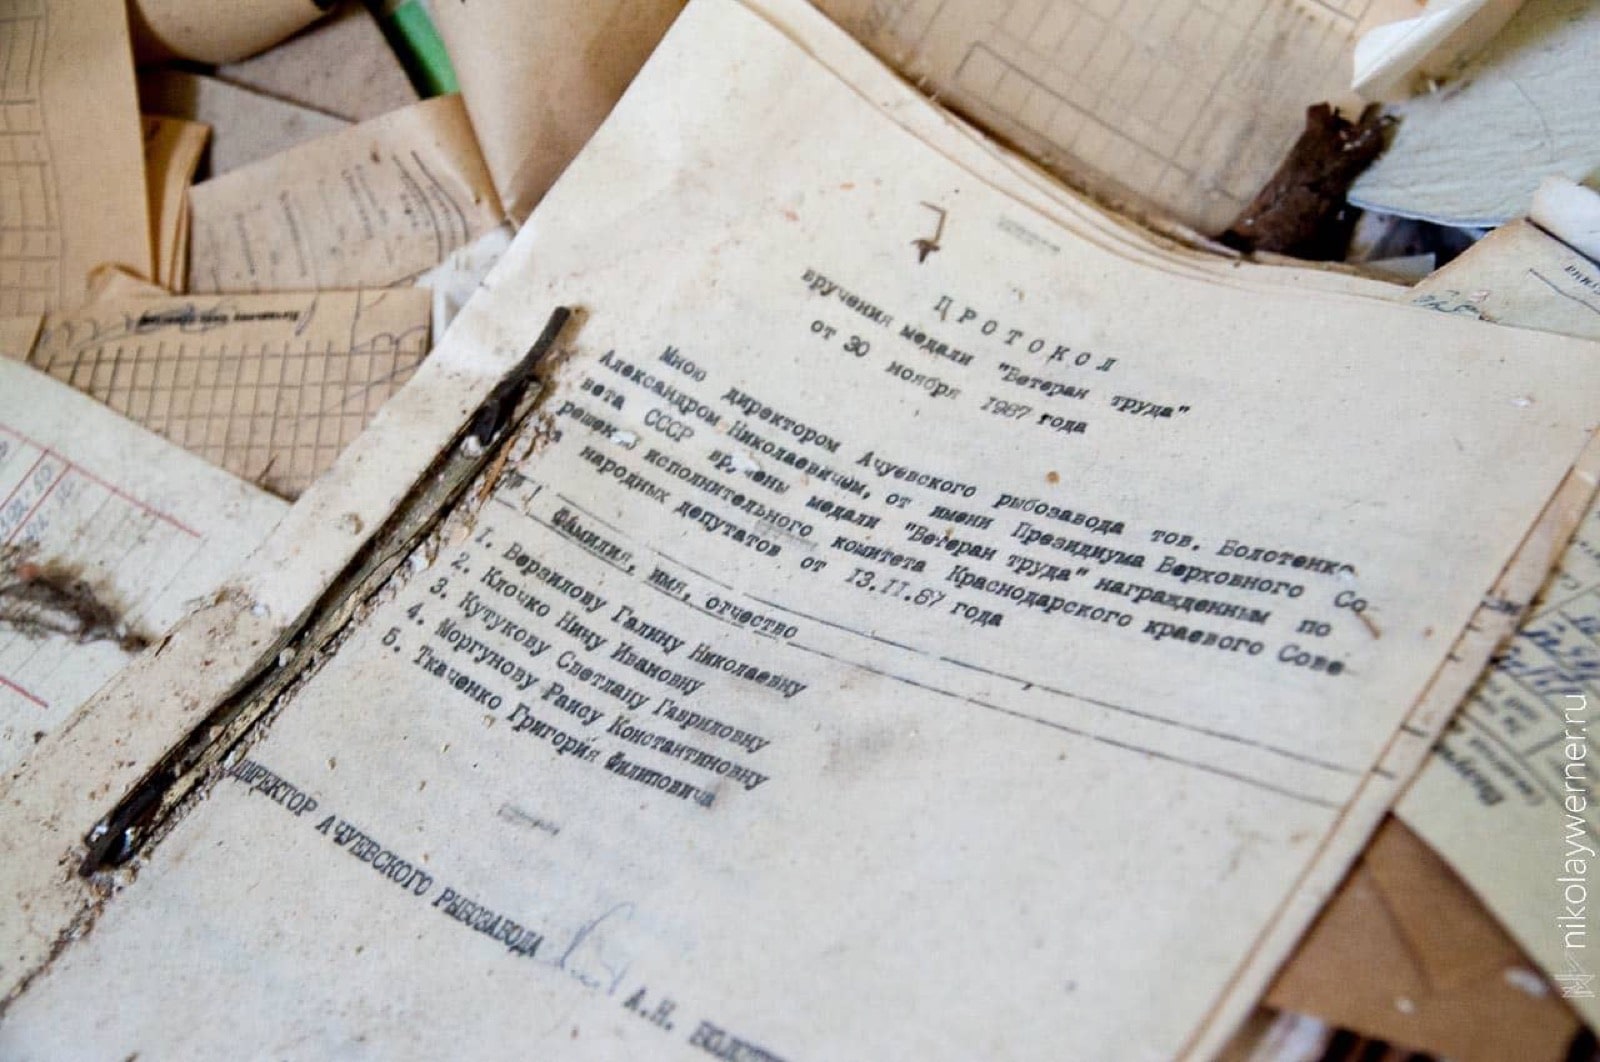 ПРОТОКОЛ
вручения медали "Ветеран труда"
от 30 ноября 1987 года
Мною директором Ачуевского рыбозавода тов. Болотенко
Александром Николаевичем, от имени Президиума Верховного Со-
вета СССР вручены медали "Ветеран труда" награжденным по
решению исполнительного комитета Краснодарского краевого Сове-
та народных депутатов от 13.11.87 года
Фамилия, имя, отчество
1. Верзилову Галину Николаевну
2. Клочко Нину Ивановну
3. Кутукову Светлану Гавриловну
4. Моргунову Раису Константиновну
5. Ткаченко Григория Филиповича
ДИРЕКТОР АЧУЕВСКОГО РЫБОЗАВОДА А.Н. БОЛОТЕ
nikolaywerner.ru